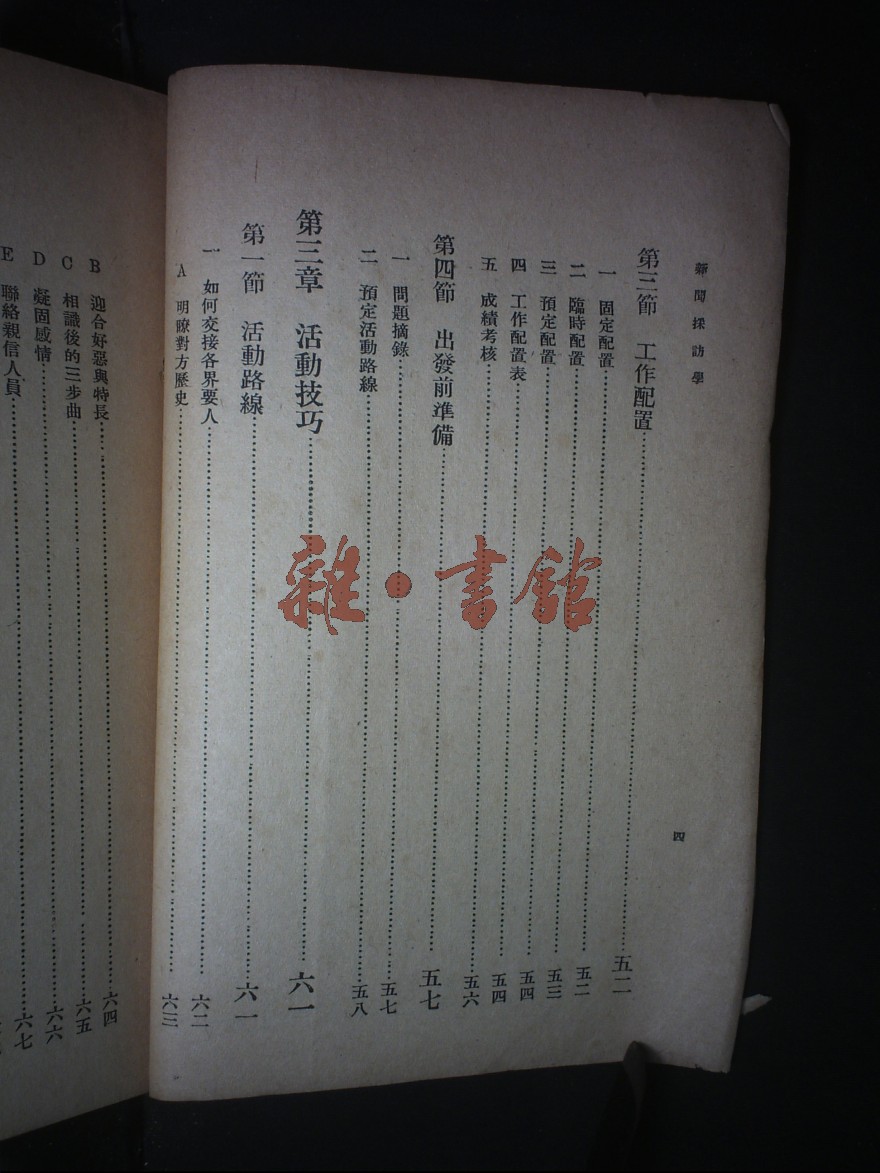 新聞採訪學
四
第三節 工作配置……五二
一 固定配置……五二
二 臨時配置……五二
三 預定配置……五三
四 工作配置表……五四
五 成績考核……五六
第四節 出發前準備……五七
一 問題摘錄……五七
二 預定活動路線……五八
第三章 活動技巧……六一
第一節 活動路線……六一
一 如何交接各界要人……六二
A 明瞭對方歷史……六三
B 迎合好惡與特長……六四
C 相識後的三步曲……六五
D 凝固感情……六六
E 聯絡親信人員……六七
雜·書館